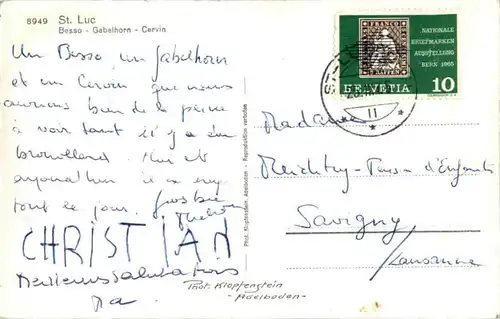 8949 St. Luc
Besso - Gabelhorn - Cervin
NATIONALE
BRIEFMARKEN
AUSSTELLUNG
BERN 1965
FRANCO
HELVETIA 10
ST-LUC
II
Un Besso un Gabelhorn
et un Cervin que nous
aurions bien de la peine
à voir tant il y a du
brouillard.
aujourd'hui il a
tout le jour. Gros bec
CHRISTIAN
Meilleures salutations
Madame
Savigny
s/Lausanne
Phot. Klopfenstein, Adelboden - Reproduktion verboten
Phot. Klopfenstein
-Adelboden-